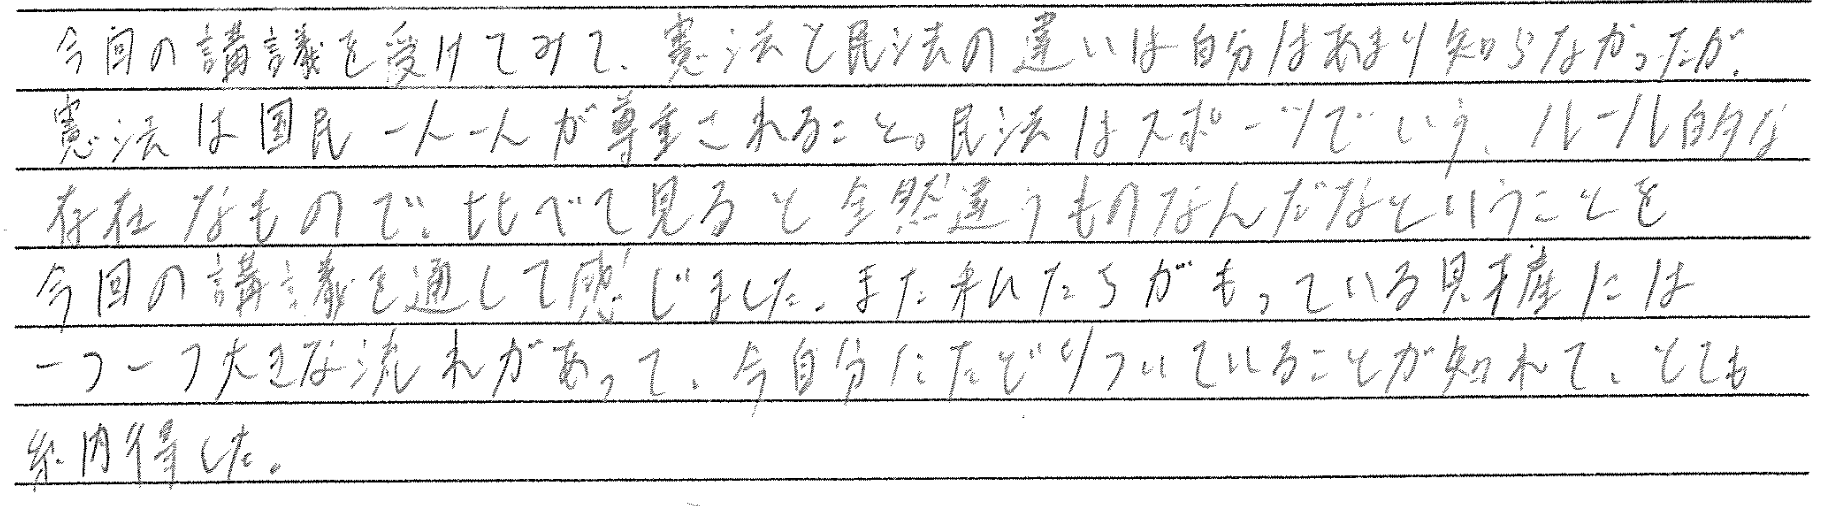 今回の講義を受けてみて、憲法と民法の違いは自分はあまり知らなかったが、
憲法は国民一人一人が尊重されること。民法はスポーツでいう、ルール的な
存在なもので、比べて見ると全然違うものなんだなということを
今回の講義を通して感じました。また私たちがもっている財産には
一つ一つ大きな流れがあって、今自分にたどりついていることが知れて、とても
納得した。